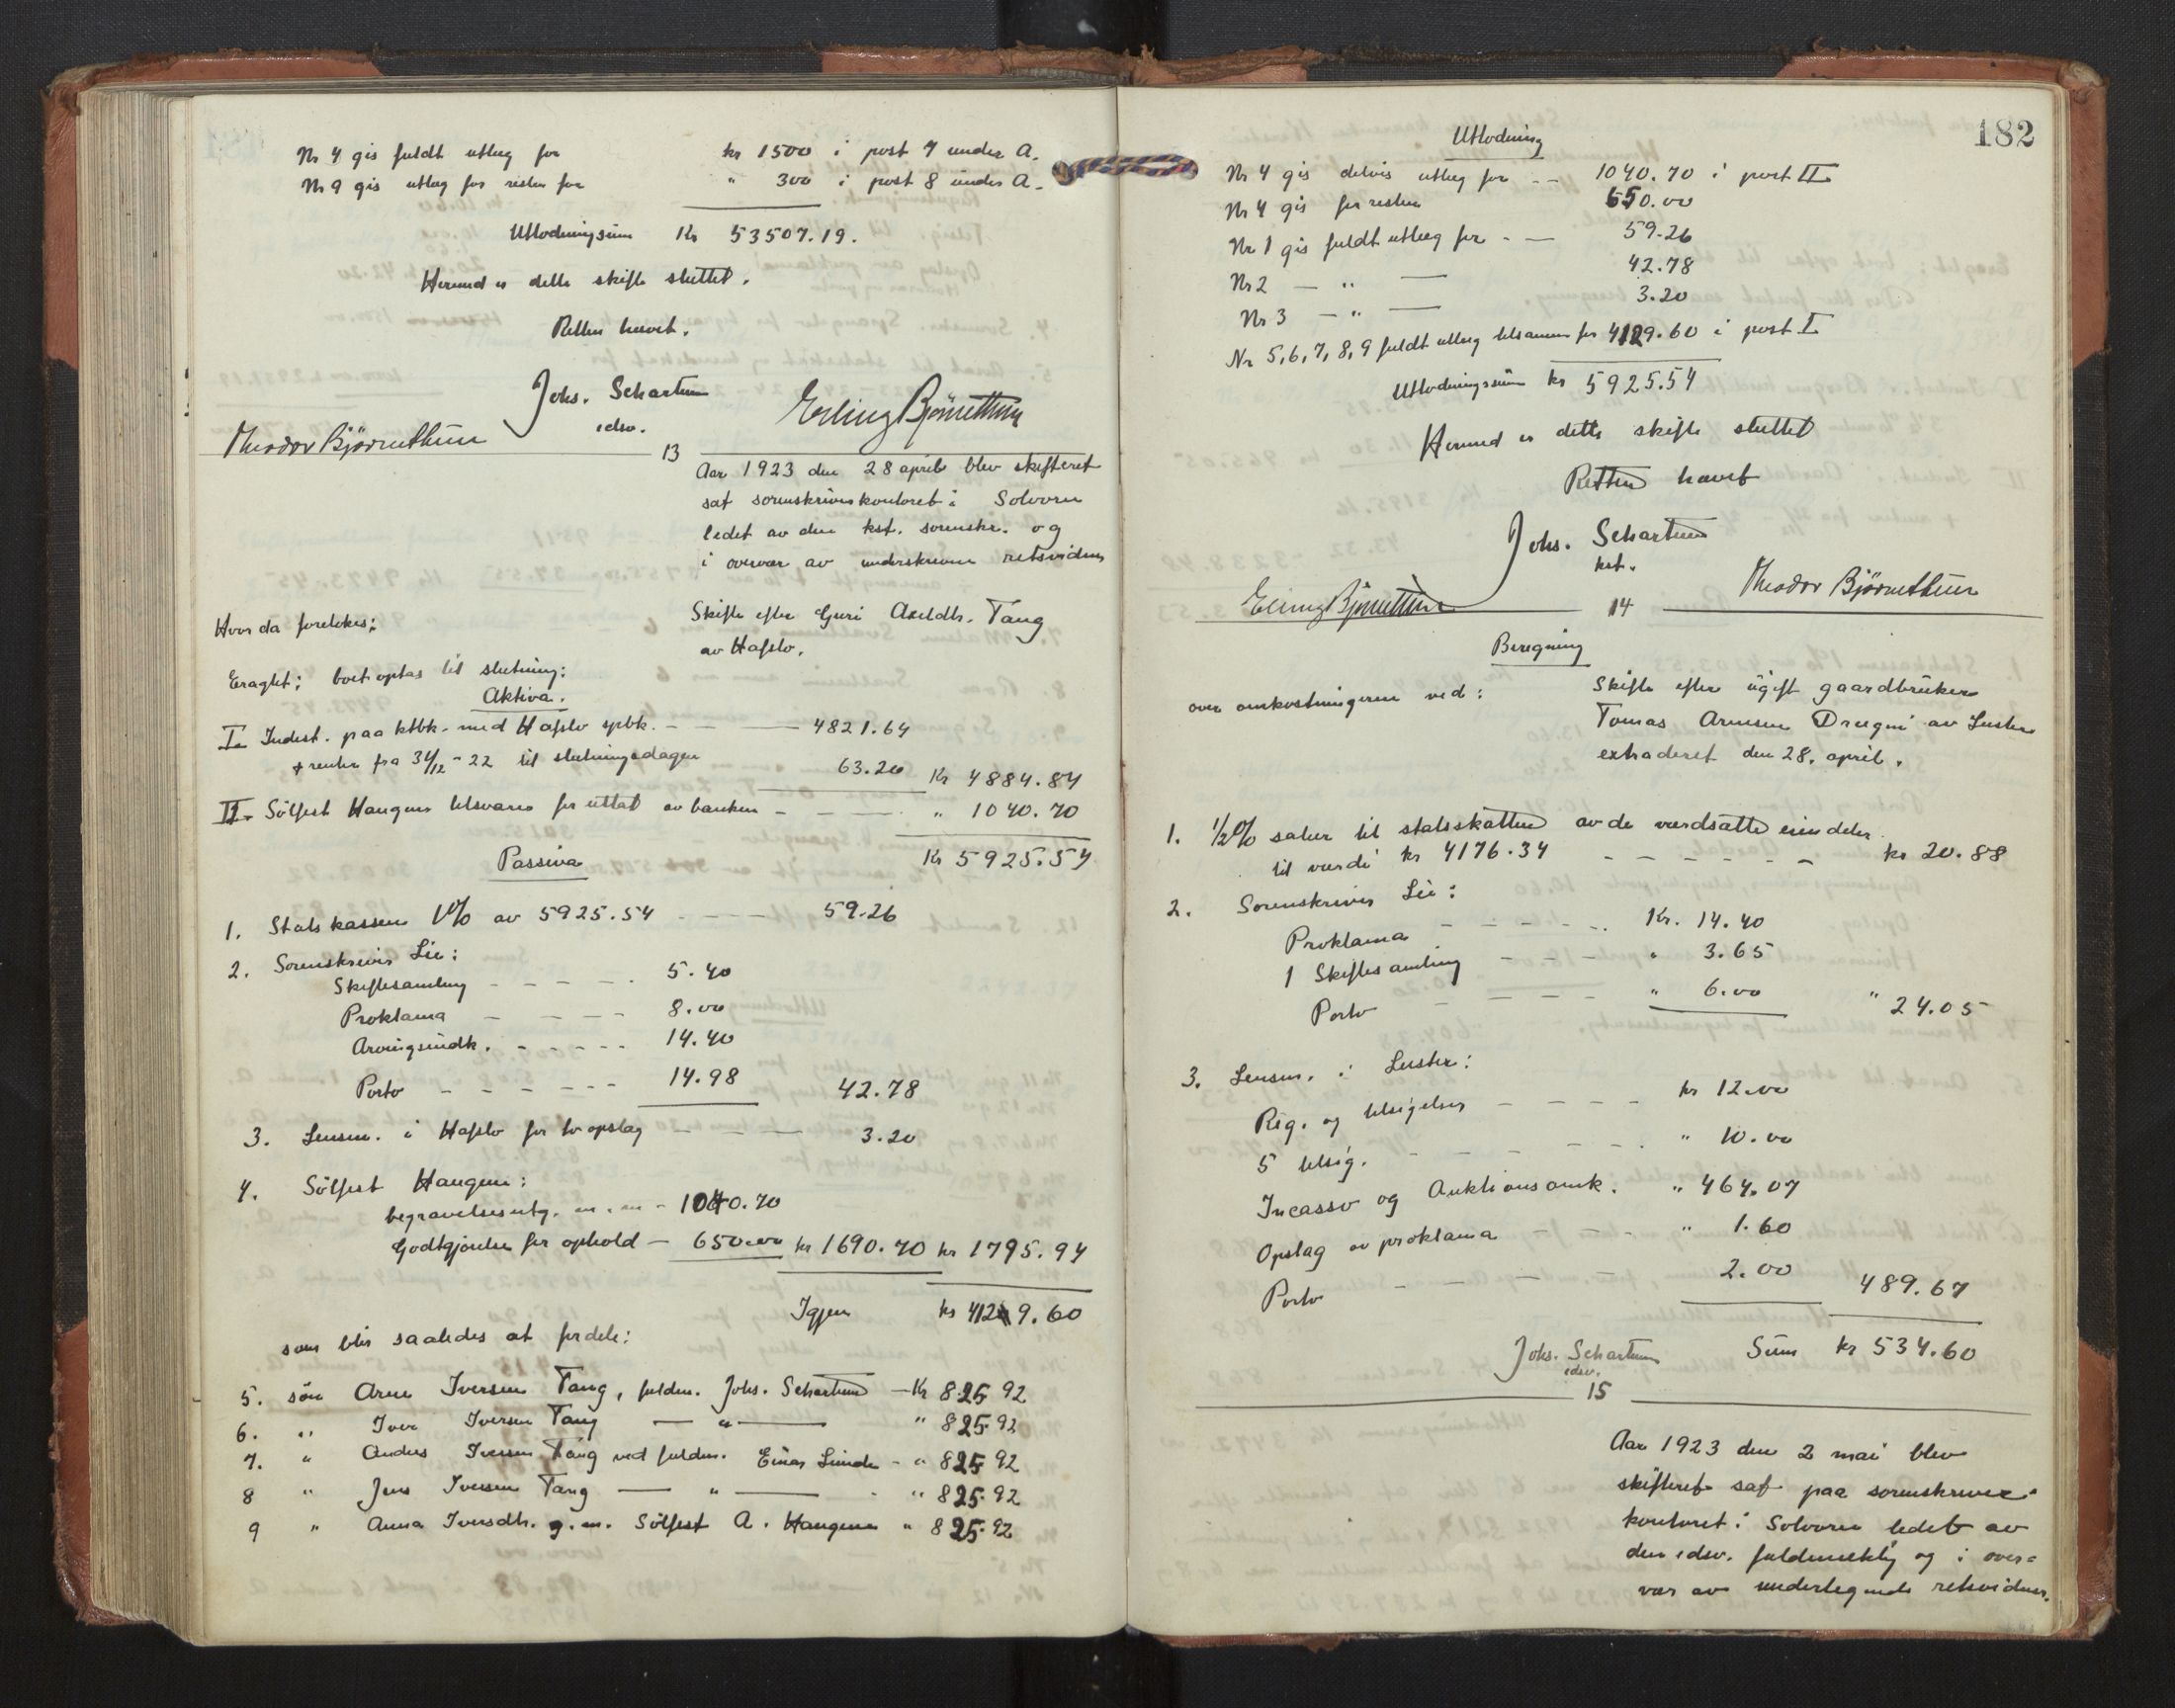 Nr 4 gis fuldt utlæg for kr 1500 i post 7 under A.
Nr 9 gis utlæg for resten for " 300 i post 8 under A.
Utlodningsum Kr 53507.19.
Hermed er dette skifte sluttet.
Retten hævet.
Johs. Schartum
edsv.
Erling Bjørnethun
Theodor Bjørnethun
13
Aar 1923 den 28 april blev skifteret
sat sorenskriverkontoret i Solvorn
ledet av den kst. sorenskr. og
i overvær av underskrevne retsvidner
Hvor da foretokes:
Skifte efter Guri Axeldtr. Tang
av Hafslo.
Eragtet: boet optas til slutning:
Aktiva.
I. Indest. paa ktbk. med Hafslo spbk. - 4821.64
+ renter fra 31/12-22 til slutningsdagen 63.20 Kr 4884.84
II. Sølfest Haugens tilsvar for uttat av banken - " 1040.70
Kr 5925.54
Passiva
1. Statskassen 1% av 5925.54 - 59.26
2. Sorenskriver Lie:
Skiftesamling - 5.40
Proklama - 8.00
Arvingsindk. - 14.40
Porto - 14.98 42.78
3. Lensm. i Hafslo for to opslag - 3.20
4. Sølfest Haugen:
begravelsesutg. m.m - 1040.70
Godtgjørelse for ophold - 650.00 kr 1690.70 kr 1795.94
Igjen kr 4129.60
som blir saaledes at fordele:
5. søn Arne Iversen Tang, fuldm. Johs. Schartum - Kr 825.92
6. " Iver Iversen Tang — " — " 825.92
7. " Anders Iversen Tang ved fuldm. Einar Linde - " 825.92
8 " Jens Iversen Tang — " — " 825.92
9 " Anna Iversdtr. g.m. Sølfest A. Haugen " 825.92
182
Utlodning
Nr 4 gis delvis utlæg for -- 1040.70 i post II
Nr 4 gis for resten 650.00
Nr 1 gis fuldt utlæg for - — 59.26
Nr 2 — " — 42.78
Nr 3 — " — 3.20
Nr 5,6,7,8,9 fuldt utlæg tilsammen for 4129.60 i post I
Utlodningssum kr 5925.54
Hermed er dette skifte sluttet
Retten hævet
Johs. Schartum
kst.
Erling Bjørnethun
14
Theodor Bjørnethun
Beregning
over omkostningerne ved:
Skifte efter ugift gaardbruker
Tomas Arnesen Drægni av Luster
extraderet den 28. april.
1. 1/2% salær til statsskatten av de værdsatte eiendeler
til værdi kr 4176.34 - kr 20.88
2. Sorenskriver Lie:
Proklama - Kr. 14.40
1 Skiftesamling - " 3.65
Porto - " 6.00 " 24.05
3. Lensm. i Luster:
Reg. og tilsigelser - kr 12.00
5 tilsig. - " 10.00
Incasso og Auktionsomk. " 464.07
Opslag av proklama - " 1.60
Porto - 2.00 489.67
Johs. Schartum
edsv.
Sum kr 534.60
15
Aar 1923 den 2 mai blev
skifteret sat paa sorenskriver-
kontoret i Solvorn ledet av
den edsv. fuldmektig og i over=
vær av undertegnede retsvidner.